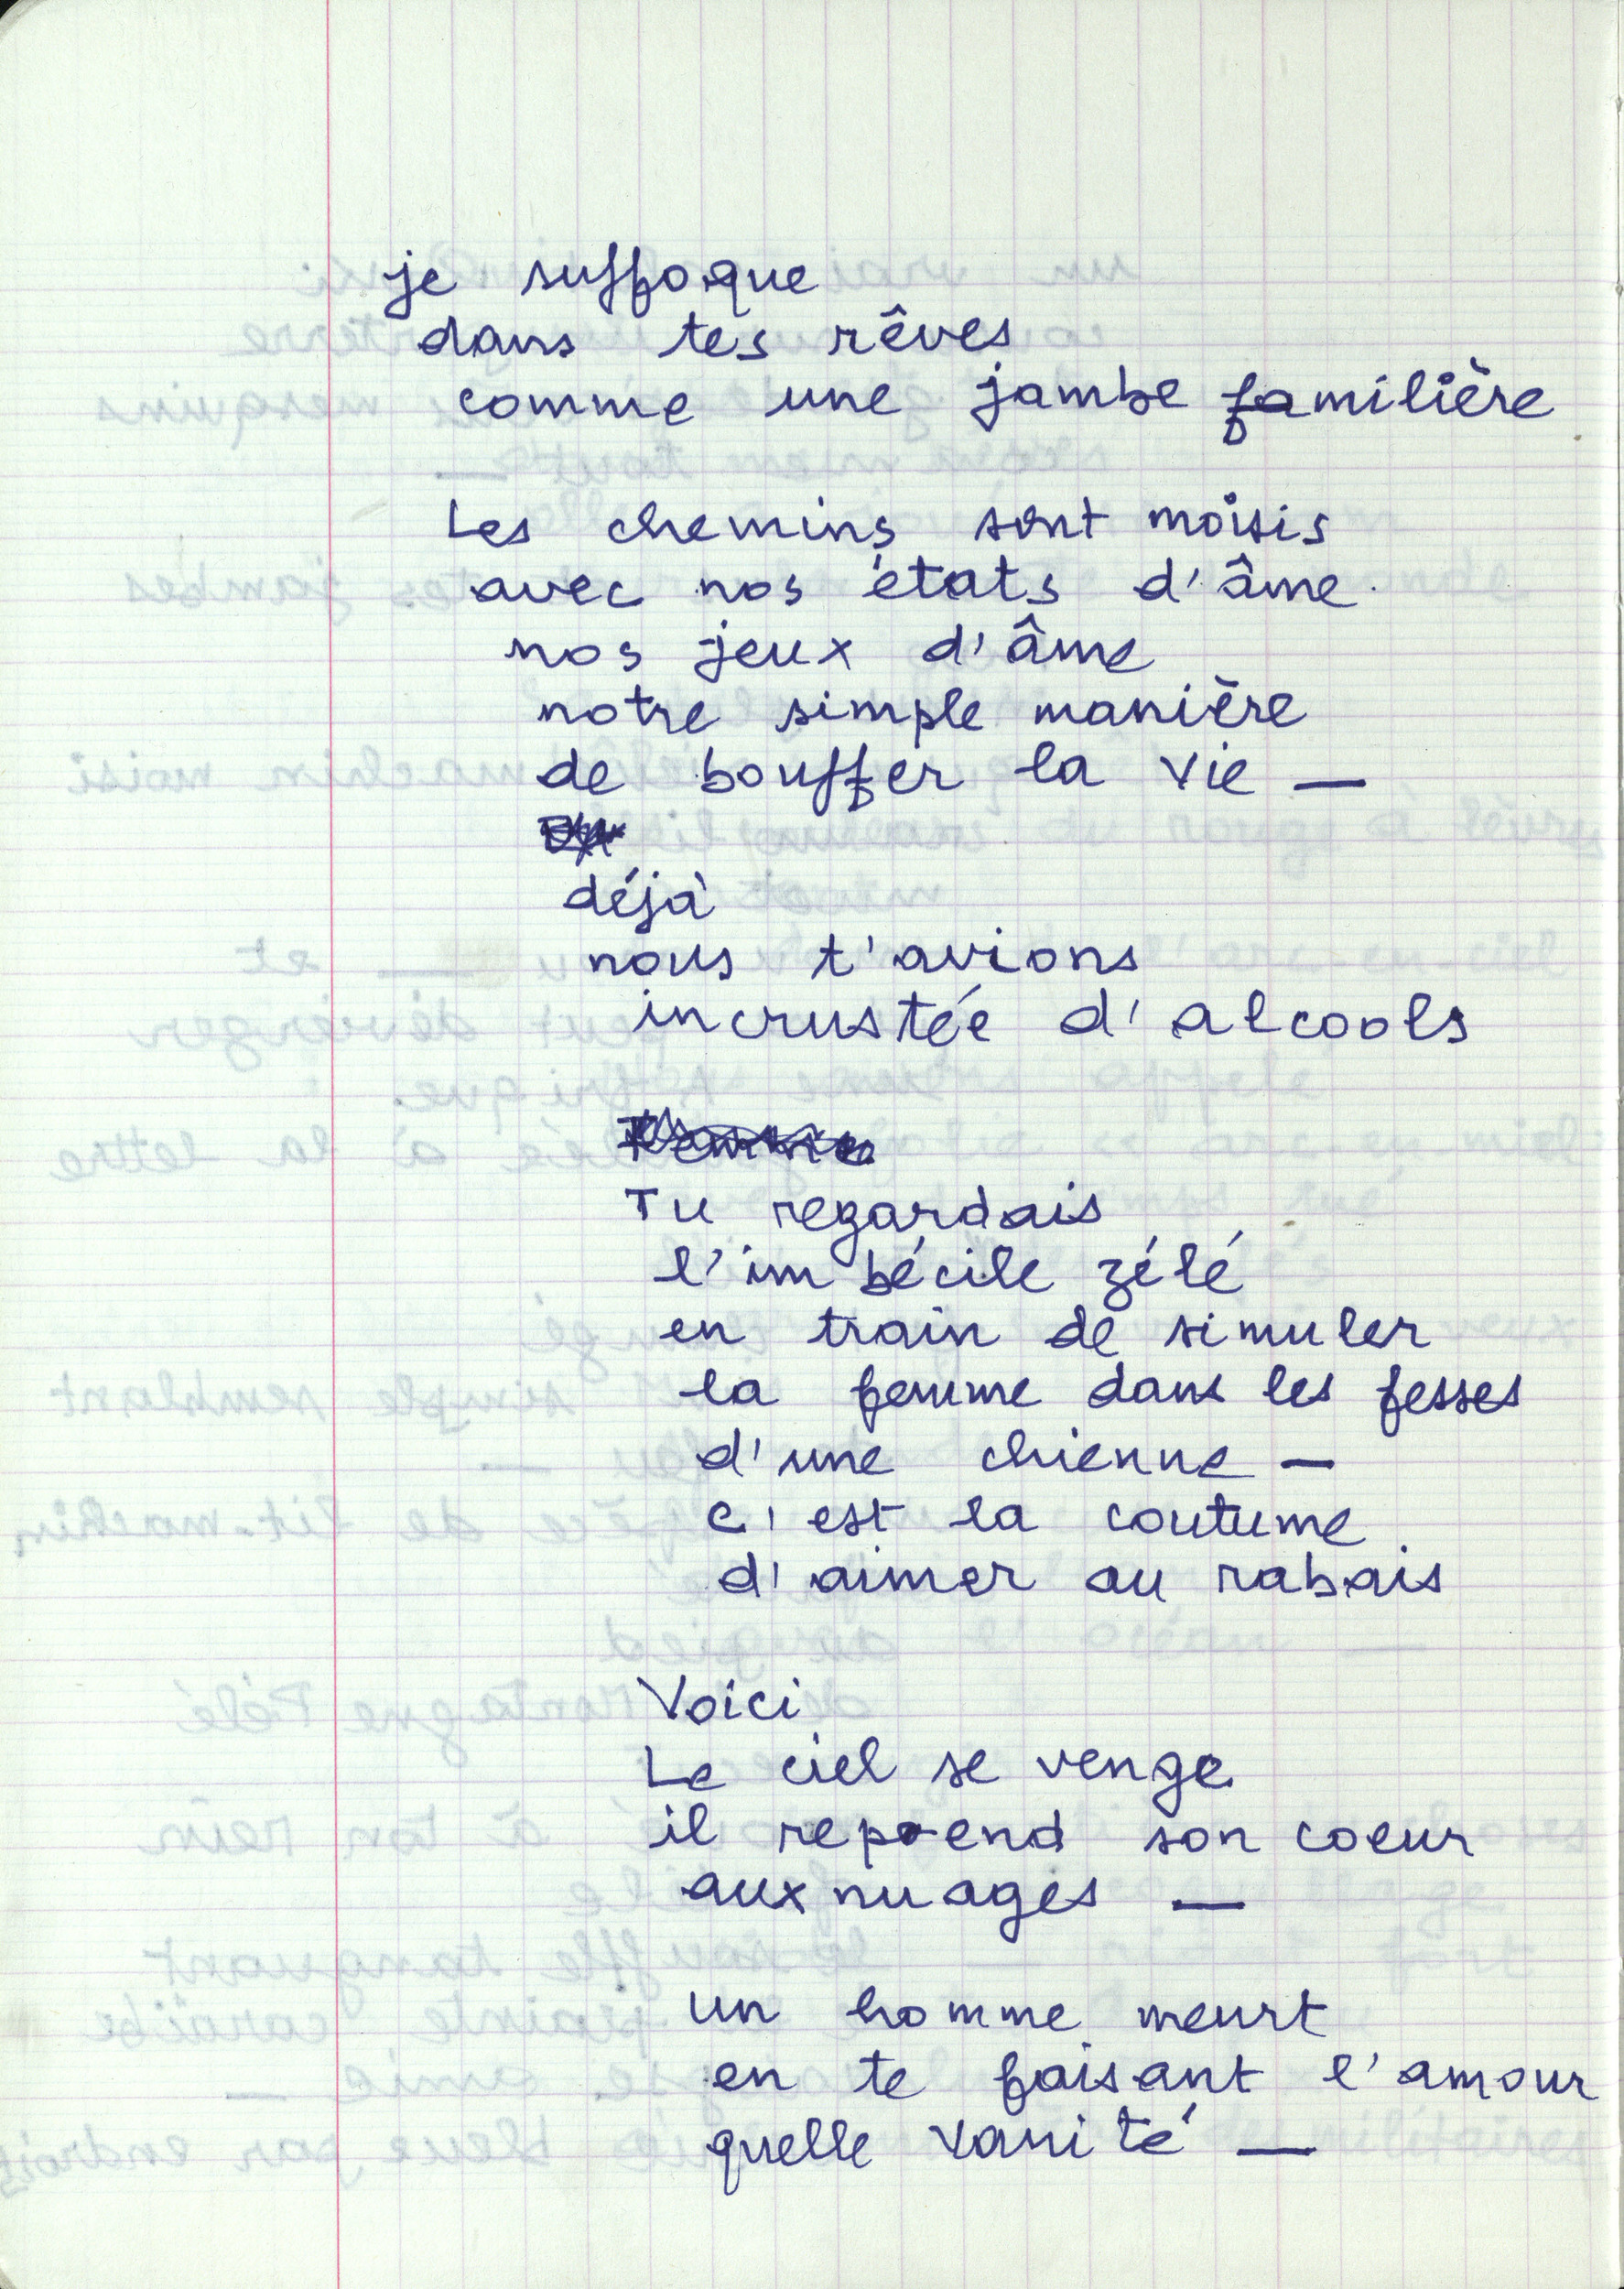 je suffoque
dans tes rêves
comme une jambe familière
Les chemins sont moisis
avec nos états d'âme.
nos jeux d'âme
notre simple manière
de bouffer la vie —
déjà
nous t'avions
incrustée d'alcools
Tu regardais
l'imbécile zélé
en train de simuler
la femme dans les fesses
d'une chienne —
c'est la coutume
d'aimer au rabais
Voici
Le ciel se venge
il reprend son coeur
aux nuages —
un homme meurt
en te faisant l'amour
quelle vanité —